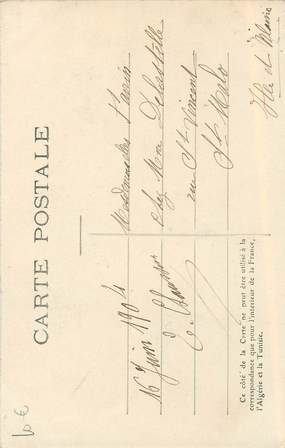 CARTE POSTALE
16 Juin 1904
Ce côté de la Carte ne peut être utilisé à la
correspondance que pour l'intérieur de la France,
l'Algérie et la Tunisie.
Mesdemoiselles
chez Mme
rue St Vincent
St Malo
Ille et Vilaine
10 €